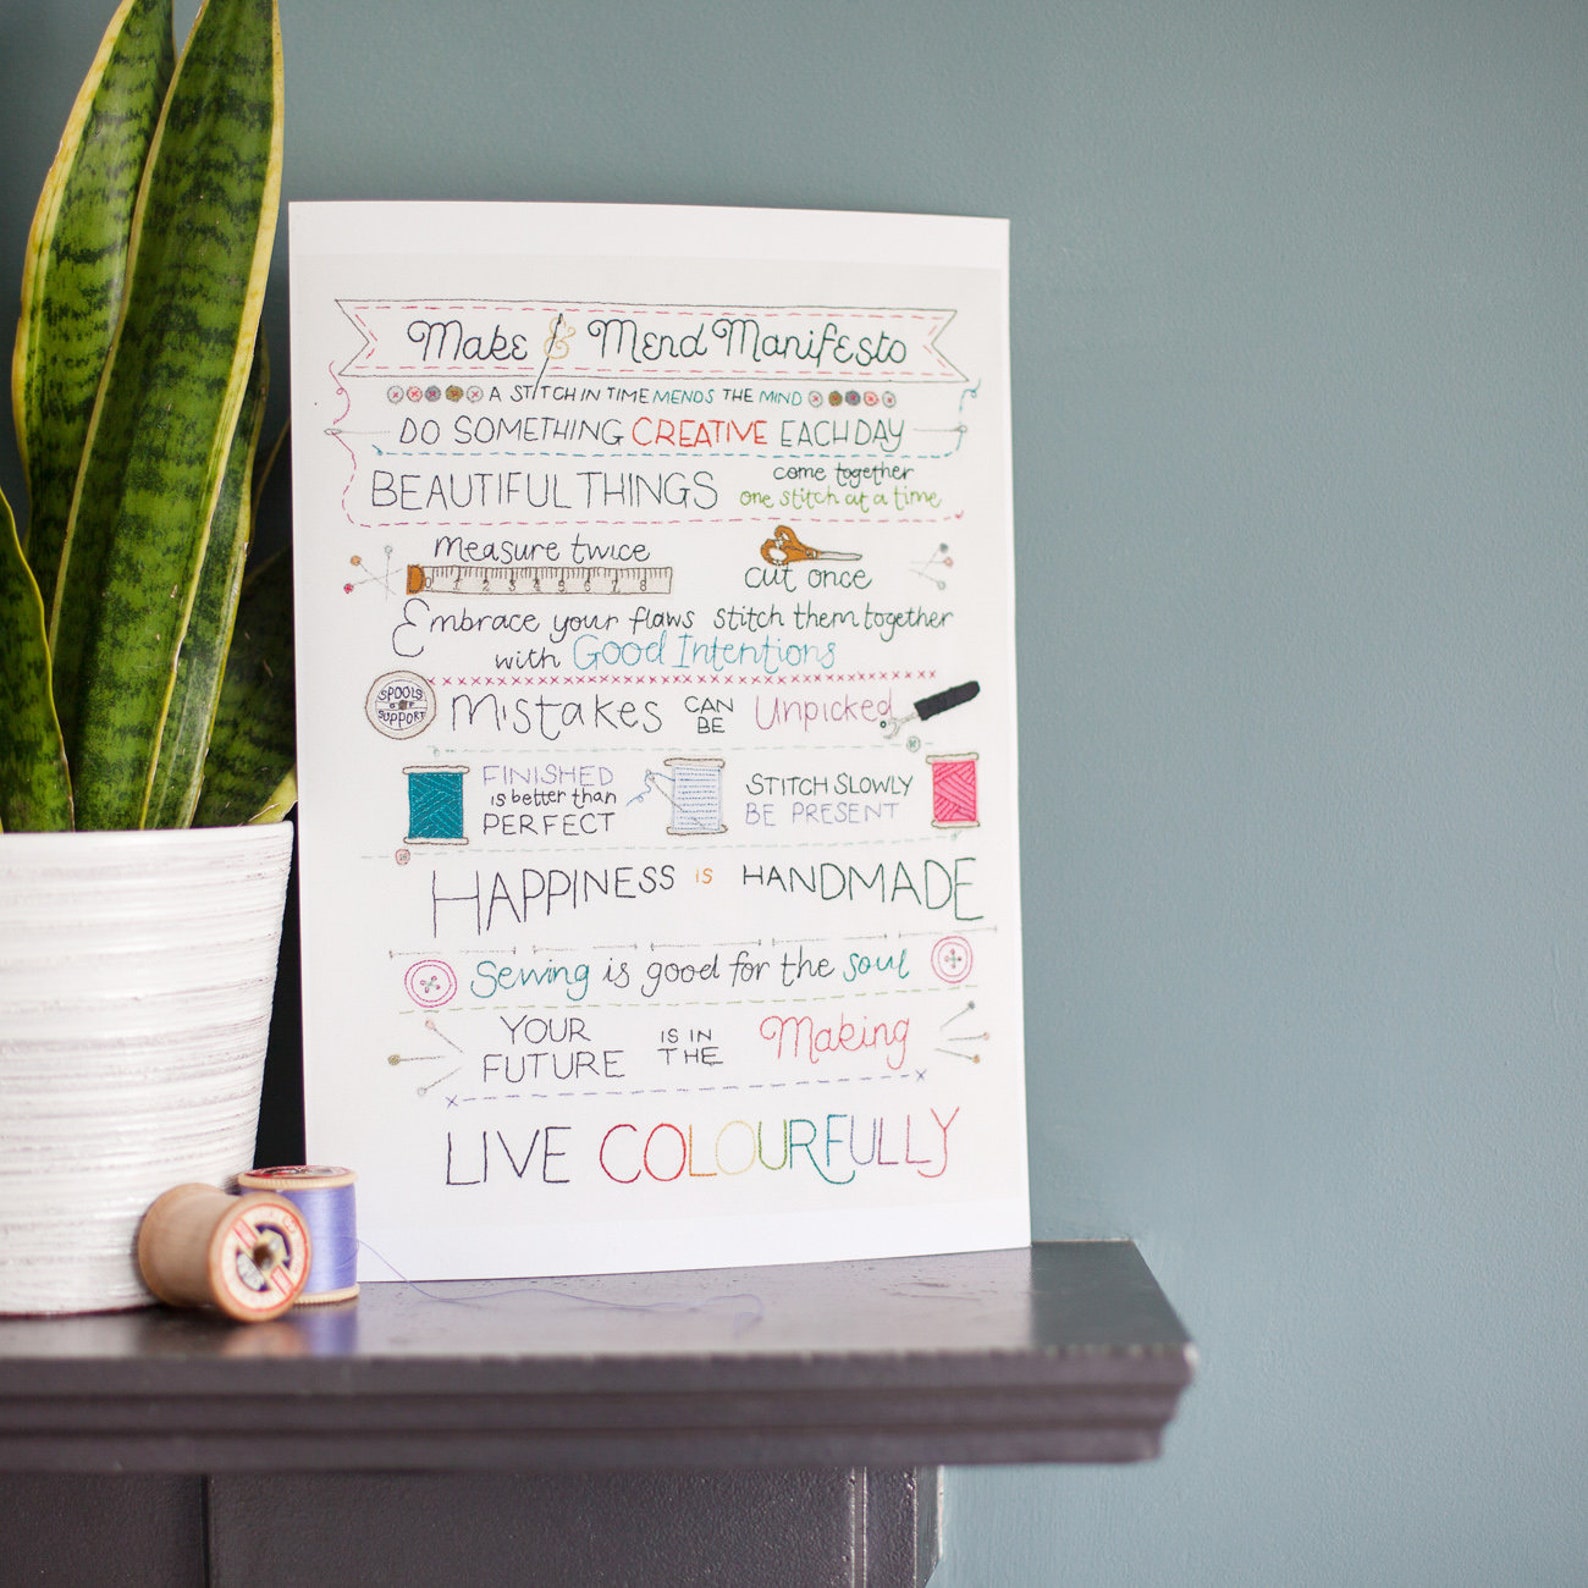 Make & Mend Manifesto
A STITCH IN TIME MENDS THE MIND
DO SOMETHING CREATIVE EACH DAY
BEAUTIFUL THINGS come together
one stitch at a time
measure twice
0 1 2 3 4 5 6 7 8
cut once
Embrace your flaws stitch them together
with Good Intentions
SPOOLS
OF
SUPPORT
Mistakes CAN BE Unpicked
FINISHED
is better than
PERFECT
STITCH SLOWLY
BE PRESENT
HAPPINESS IS HANDMADE
Sewing is good for the soul
YOUR FUTURE IS IN THE Making
LIVE COLOURFULLY